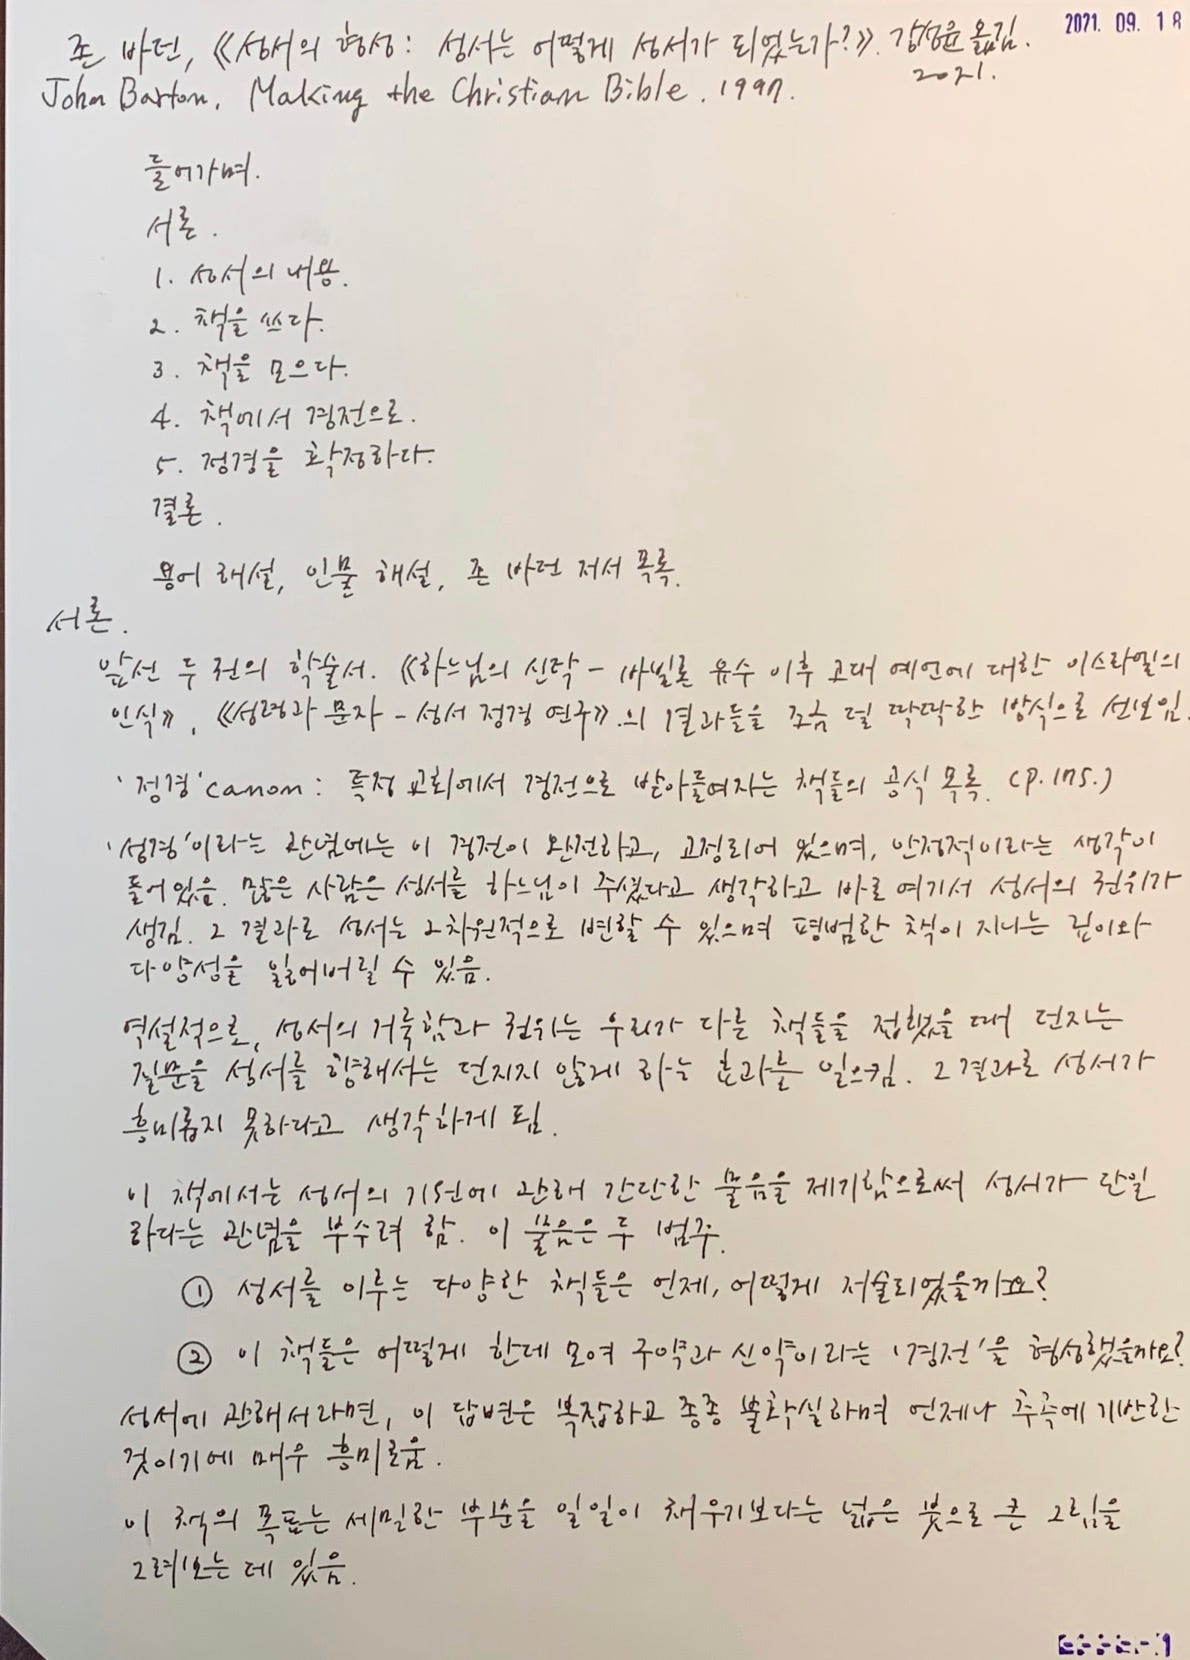 2021. 09. 18
존 바턴, 《성서의 형성: 성서는 어떻게 성서가 되었는가?》. 강성윤 옮김.
2021.
John Barton, Making the Christian Bible. 1997.
들어가며.
서론.
1. 성서의 내용.
2. 책을 쓰다.
3. 책을 모으다.
4. 책에서 경전으로.
5. 정경을 확정하다.
결론.
용어 해설, 인물 해설, 존 바턴 저서 목록.
서론.
앞선 두 권의 학술서. 《하느님의 신탁 - 바빌론 유수 이후 고대 예언에 대한 이스라엘의
인식》, 《성령과 문자 - 성서 정경 연구》의 결과들을 조금 덜 딱딱한 방식으로 선보임.
'정경' canon: 특정 교회에서 경전으로 받아들여지는 책들의 공식 목록. (p.175.)
'성경'이라는 관념에는 이 경전이 완전하고, 고정되어 있으며, 안정적이라는 생각이
들어있음. 많은 사람은 성서를 하느님이 주셨다고 생각하고 바로 여기서 성서의 권위가
생김. 그 결과로 성서는 2차원적으로 변할 수 있으며 평범한 책이 지니는 깊이와
다양성을 잃어버릴 수 있음.
역설적으로, 성서의 거룩함과 권위는 우리가 다른 책들을 접했을 때 던지는
질문을 성서를 향해서는 던지지 않게 하는 효과를 일으킴. 그 결과로 성서가
흥미롭지 못하다고 생각하게 됨.
이 책에서는 성서의 기원에 관해 간단한 물음을 제기함으로써 성서가 단일
하다는 관념을 부수려 함. 이 물음은 두 범주.
① 성서를 이루는 다양한 책들은 언제, 어떻게 저술되었을까요?
② 이 책들은 어떻게 한데 모여 구약과 신약이라는 '경전'을 형성했을까요?
성서에 관해서라면, 이 답변은 복잡하고 종종 불확실하며 언제나 추측에 기반한
것이기에 매우 흥미로움.
이 책의 목표는 세밀한 부분을 일일이 채우기보다는 넓은 붓으로 큰 그림을
그려보는 데 있음.